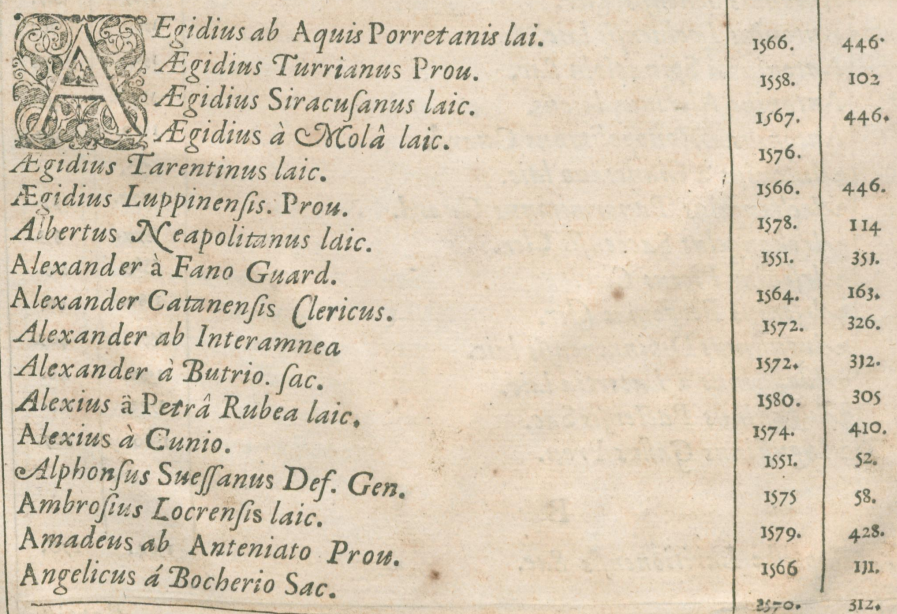 AEgidius ab Aquis Porretanis lai. 1566. 446.
Ægidius Turrianus Prou. 1558. 102
Ægidius Siracuſanus laic. 1567. 446.
Ægidius à Molâ laic. 1576.
Ægidius Tarentinus laic. 1566. 446.
Ægidius Luppinenſis. Prou. 1578. 114
Albertus Neapolitanus laic. 1551. 351.
Alexander à Fano Guard. 1564. 163.
Alexander Catanenſis Clericus. 1572. 326.
Alexander ab Interamnea 1572. 312.
Alexander à Butrio. ſac. 1580. 305
Alexius à Petrâ Rubea laic. 1574. 410.
Alexius à Cunio. 1551. 52.
Alphonſus Sueſſanus Def. Gen. 1575 58.
Ambroſius Locrenſis laic. 1579. 428.
Amadeus ab Anteniato Prou. 1566 111.
Angelicus á Bocherio Sac. 1570. 312.